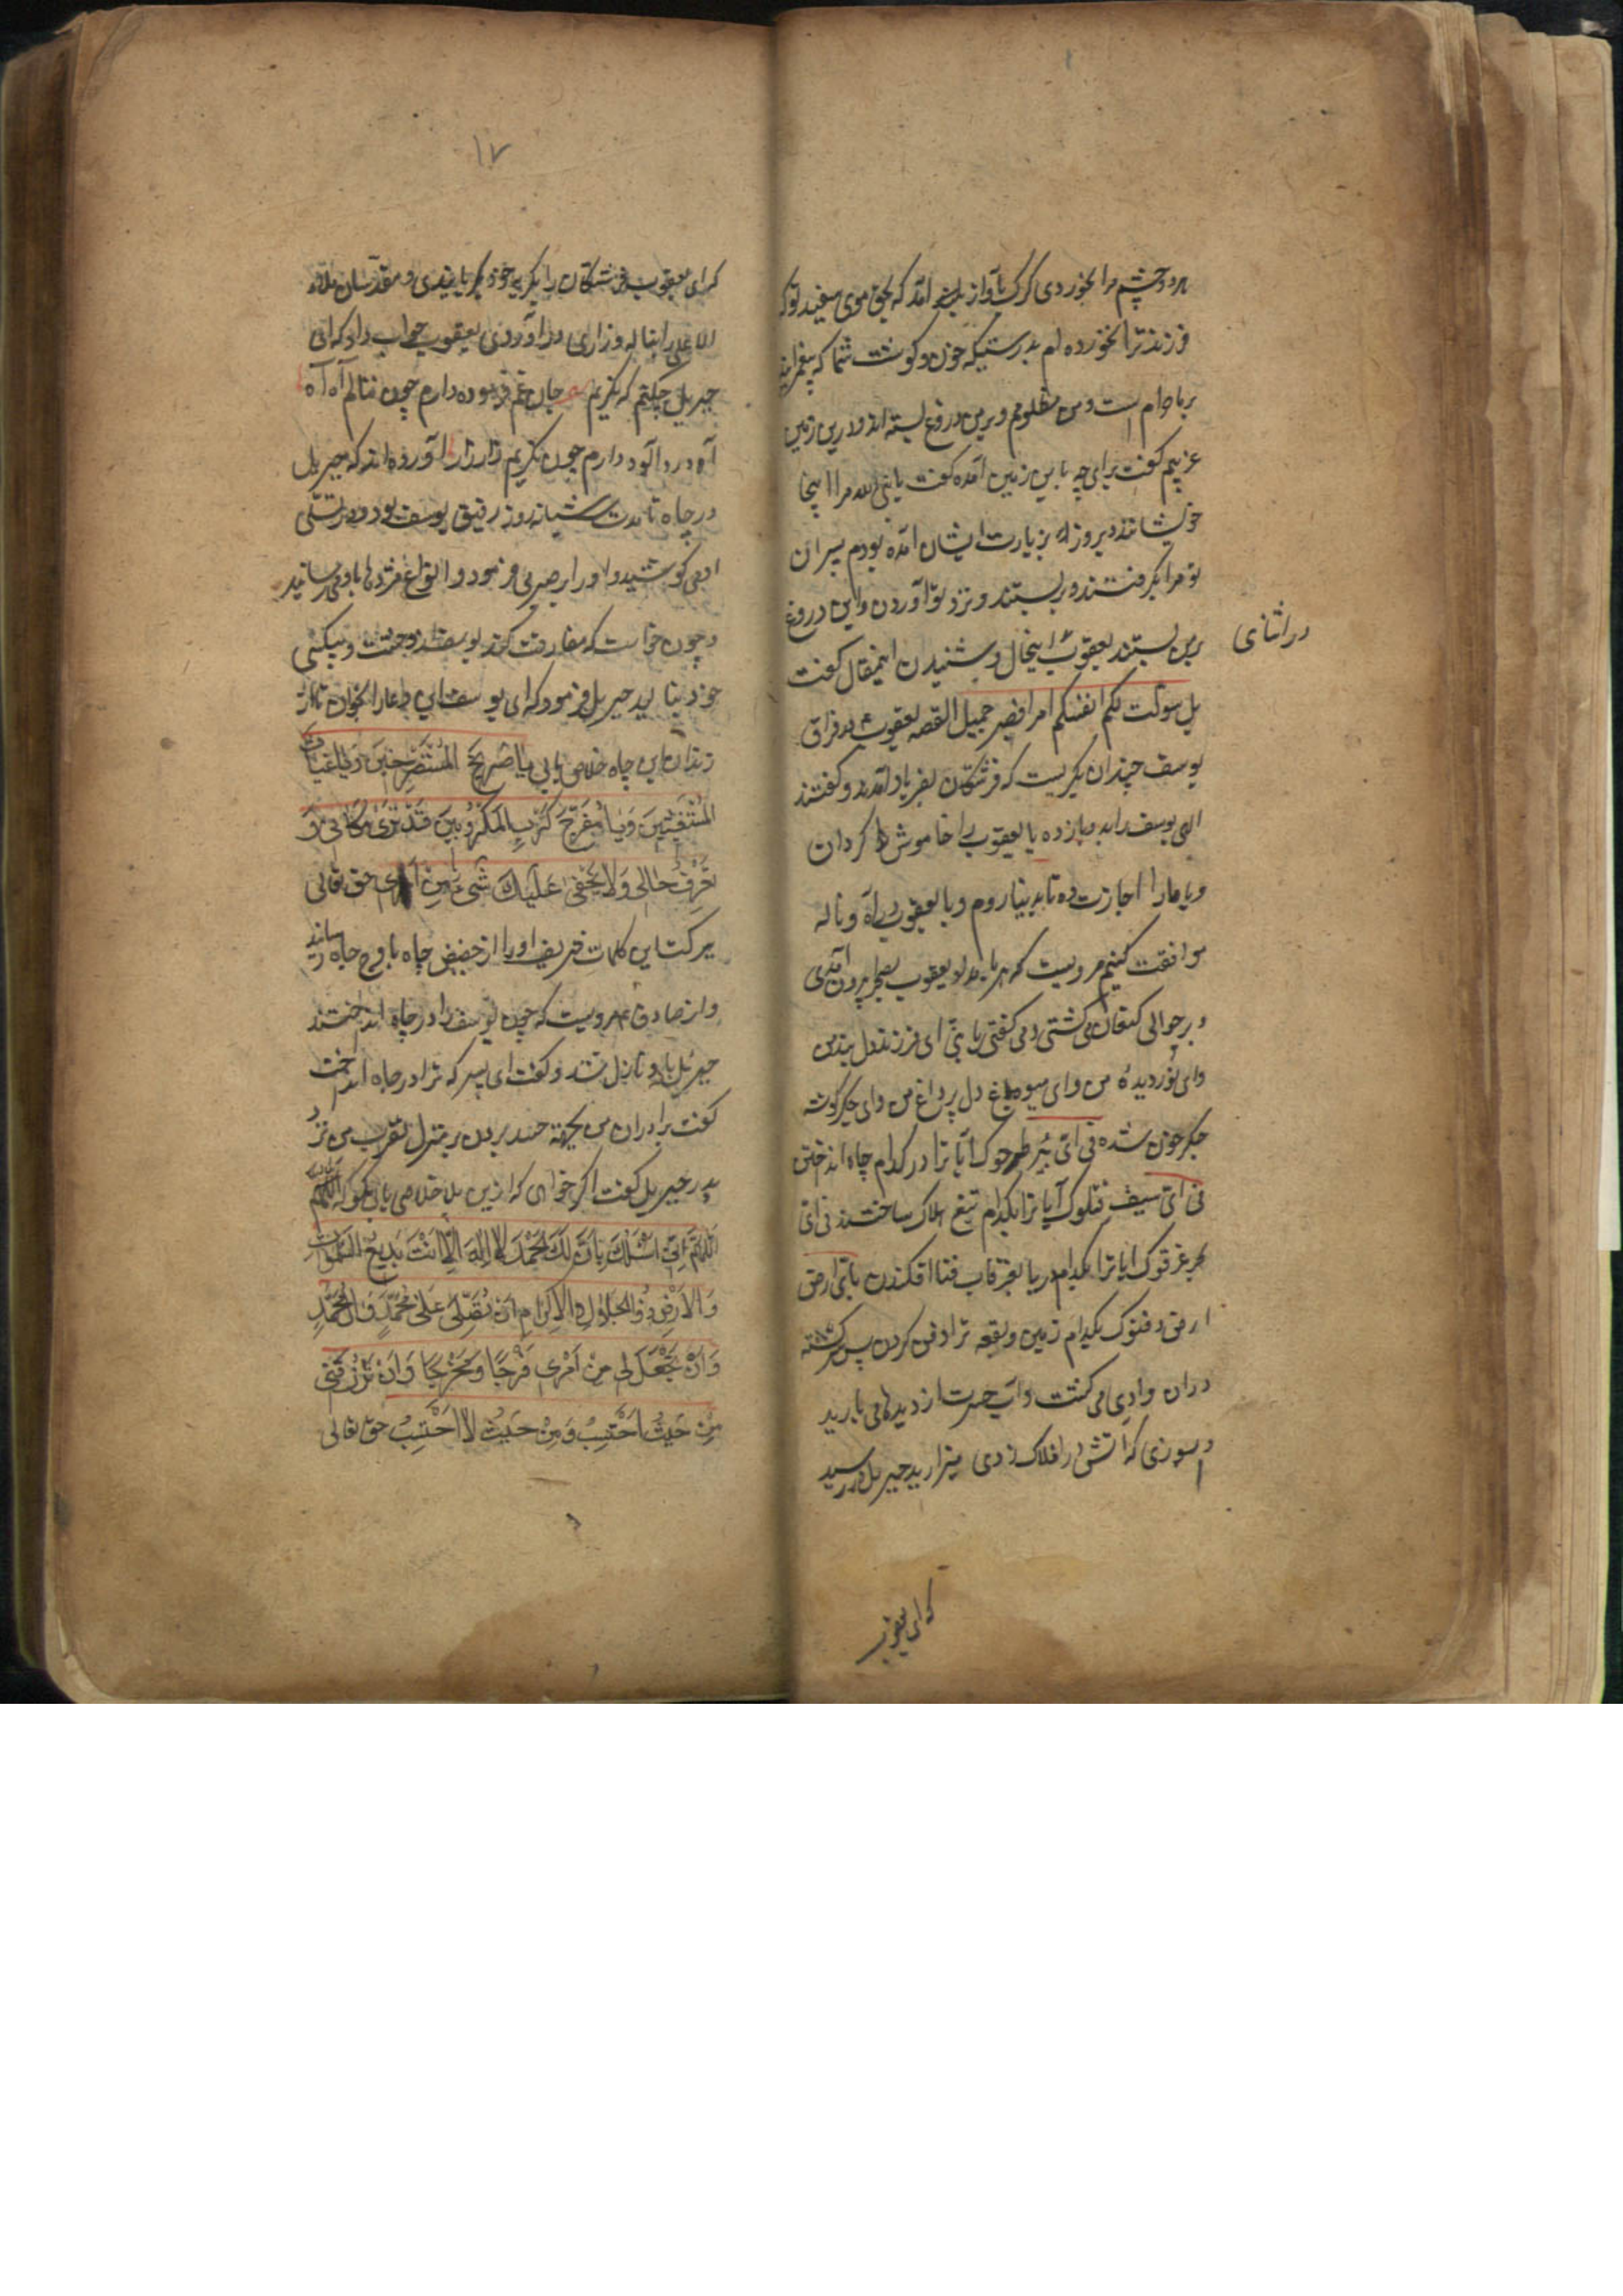 هر دو چشم مرا بخوردی کرک باواز بلند امد که بحق موی سفید تو که
فرزند ترا نخورده ام بدرستیکه خون و کوشت شما که پیغمبرانید
بر ما حرام است و من مظلومم و برمن دروغ بسته اند و درین زمین
غریبم کفت برای چه باین زمین آمده کفت یا نبی الله مرا اینجا
خویشانند دیروز به زیارت ایشان آمده بودم پسران
تو مرا بکرفتند و بر بستند و نزد تو آوردن و این دروغ
برمن بستند یعقوب اینحال و شنیدن اینمقال کفت
در اثنای
بل سولت لکم انفسکم امرا فصبر جمیل القصه یعقوب ع در فراق
یوسف چندان بکریست که فرشتکان بفریاد آمدند و کفتند
الهی یوسف را بدو باز ده یا یعقوب را خاموش کردان
و یا مارا اجازت ده تا بدنیا رویم و با یعقوب در آه و ناله
موافقت کنیم مرویست که هر بامداد یعقوب بصحرا برون آمدی
و بر حوالی کنعان می کشتی و می کفتی یا بنی ای فرزند دلبند من
و ای نور دیده من و ای میوه باغ دل پر داغ من و ای جکر کوشه
جکر خون شده فی ای بئر طرحوک آیا ترا در کدام چاه انداختن
فی ای سیف قتلوک آیا ترا بکدام تیغ هلاک ساختند فی ای
بحر غرقوک ایا ترا بکدام دریا بغرقاب فنا افکندن بای ارض
ارض دفنوک بکدام زمین و بقعه ترا دفن کردن پس سرکشته
دران وادی می کشت و آب حسرت از دیدها می بارید
و بسوزی که اتش در افلاک زدی میزارید جبریل در رسید
که ای یعقوب
۱۷
که ای یعقوب فرشتکان را بکریه خود بکریانیدی و مقدسان ملاء
الاعلی را بناله و زاری در آوردی یعقوب جواب داد که ای
جبریل چکنم که نکریم جان غم فرسوده دارم چون ننالم آه آه
آه درد الود دارم چون نکریم زار زار آورده اند که جبریل
در چاه تا مدت سه شبانه روز رفیق یوسف بود و در تسلی
او می کوشید و اورا بر صبر می فرمود و انواع مژدها باو می رسانید
و چون خواست که مفارقت کند یوسف از وحشت و بیکسی
خود بنالید جبریل فرمود که ای یوسف این دعا را بخوان تا از
زندان این چاه خلاص یابی یَا صَرِیخَ المُسْتَصْرِخِینَ وَیَا غِیَاثَ
المُسْتَغِیثِینَ وَیَا مُفَرِّجَ کَرْبِ المَکْرُوبِینَ قَدْ تَرَیٰ مَکَانِی وَ
تَعْرِفُ حَالِی وَلَا یَخْفٰی عَلَیْكَ شَیْءٌ مِنْ اَمْرِی حق تعالی
ببرکت این کلمات شریف اورا از حضیض چاه باوج جاه رساند
و از صادق ع مرویست که چون یوسف را در چاه انداختند
جبرئیل باو نازل شد و کفت ای پسر که ترا در چاه انداخت
کفت برادران من بجهة حسد بردن بر منزل تقرب من نزد
پدر جبریل کفت اکر خواهی که ازین بلا خلاصی یابی بکو که اللهم
اللّٰهُمَّ اِنِّی اَسْئَلُكَ بِاَنَّ لَكَ الحَمْدَ لَا اِلٰهَ اِلَّا اَنْتَ بَدِیعُ السَّمٰوَاتِ
وَالاَرْضِ ذُو الجَلَالِ وَالاِکْرَامِ اَنْ تُصَلِّیَ عَلٰی مُحَمَّدٍ وَ الِ مُحَمَّدٍ
وَاَنْ تَجْعَلَ لِی مِنْ اَمْرِی فَرَجًا وَمَخْرَجًا وَاَنْ تَرْزُقَنِی
مِنْ حَیْثُ اَحْتَسِبُ وَمِنْ حَیْثُ لَا اَحْتَسِبُ حق تعالی